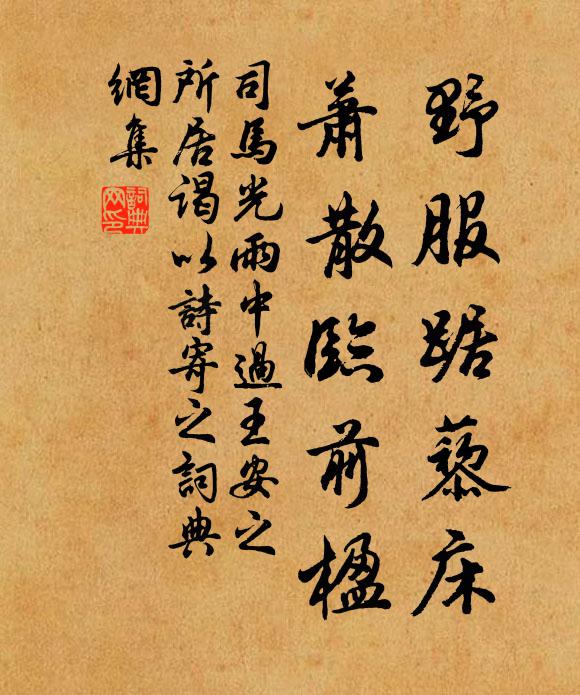 野服踞藜床
蕭散臨前楹
司馬光雨中過王安之
所居謁以詩寄之詞典
網集
詞典
网印